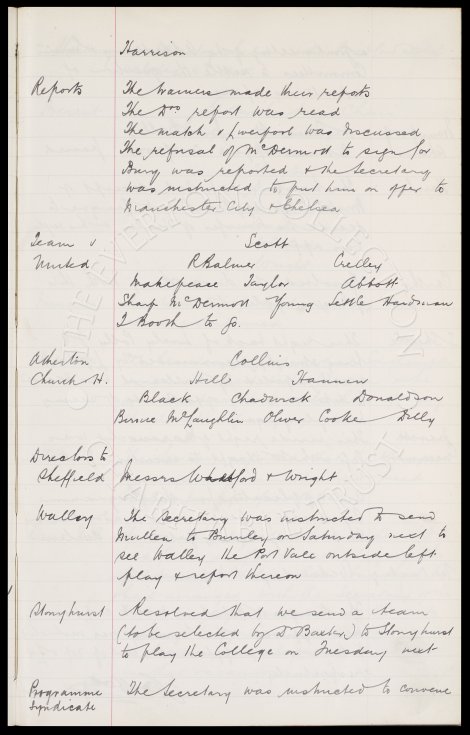 Harrison
Reports The trainers made their reports
The Drs report was read
The match v Liverpool was discussed
The refusal of McDermott to sign for
Bury was reported & the Secretary
was instructed to put him on offer to
Manchester City & Chelsea
Team v Scott
United R Balmer Crelley
Makepeace Taylor Abbott
Sharp McDermott Young Settle Hardman
T Booth to go.
Atherton Collins
Church H. Hill Hannen
Black Chadwick Donaldson
Birnie McLaughlin Oliver Cooke Dilly
Directors to
Sheffield Messrs Wadsford & Wright
Walley The Secretary was instructed to send
Mullen to Burnley on Saturday next to
see Walley the Port Vale outside left
play & report thereon
Stonyhurst Resolved that we send a team
(to be selected by Dr Baxter) to Stonyhurst
to play the College on Tuesday next
Programme The Secretary was instructed to convene
Syndicate
THE EVERTON COLLECTION
CHARITABLE TRUST